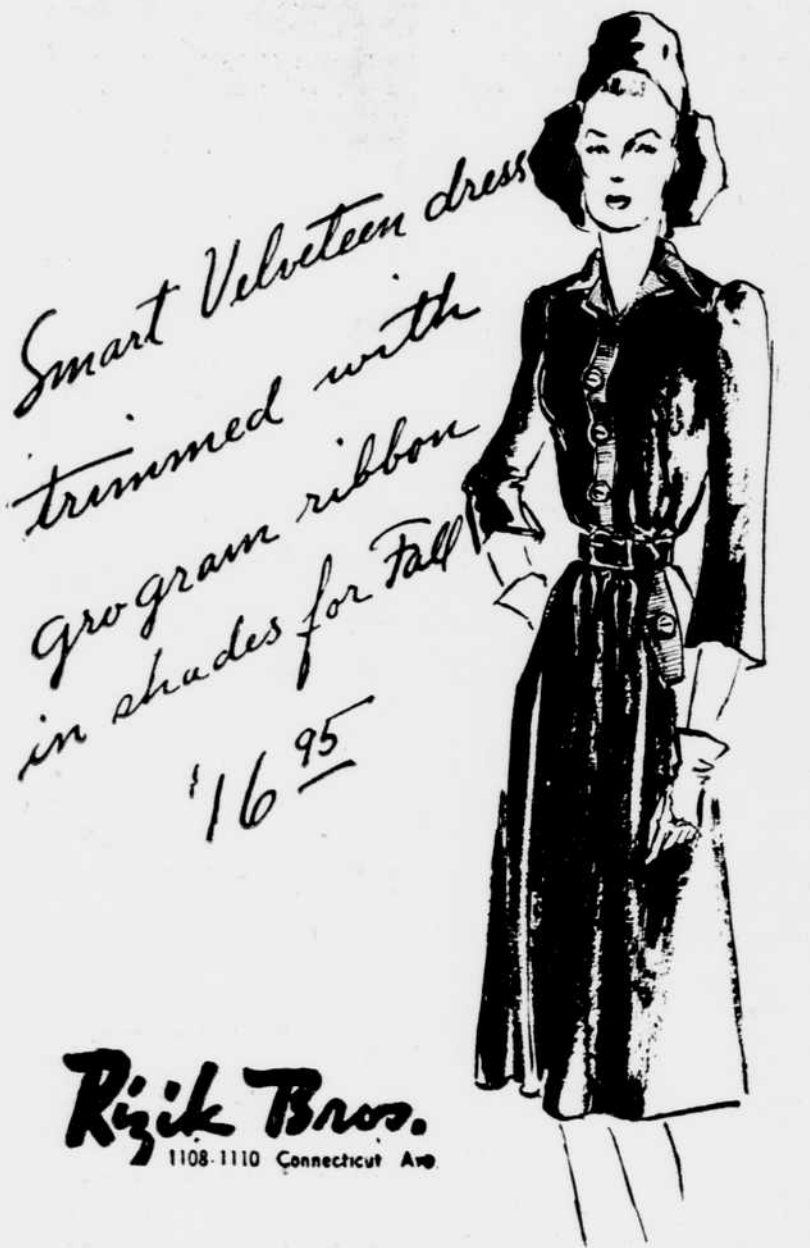 Smart Velveteen dress
trimmed with
grograin ribbon
in shades for Fall
$16 95
Rizik Bros.
1108-1110 Connecticut Ave.